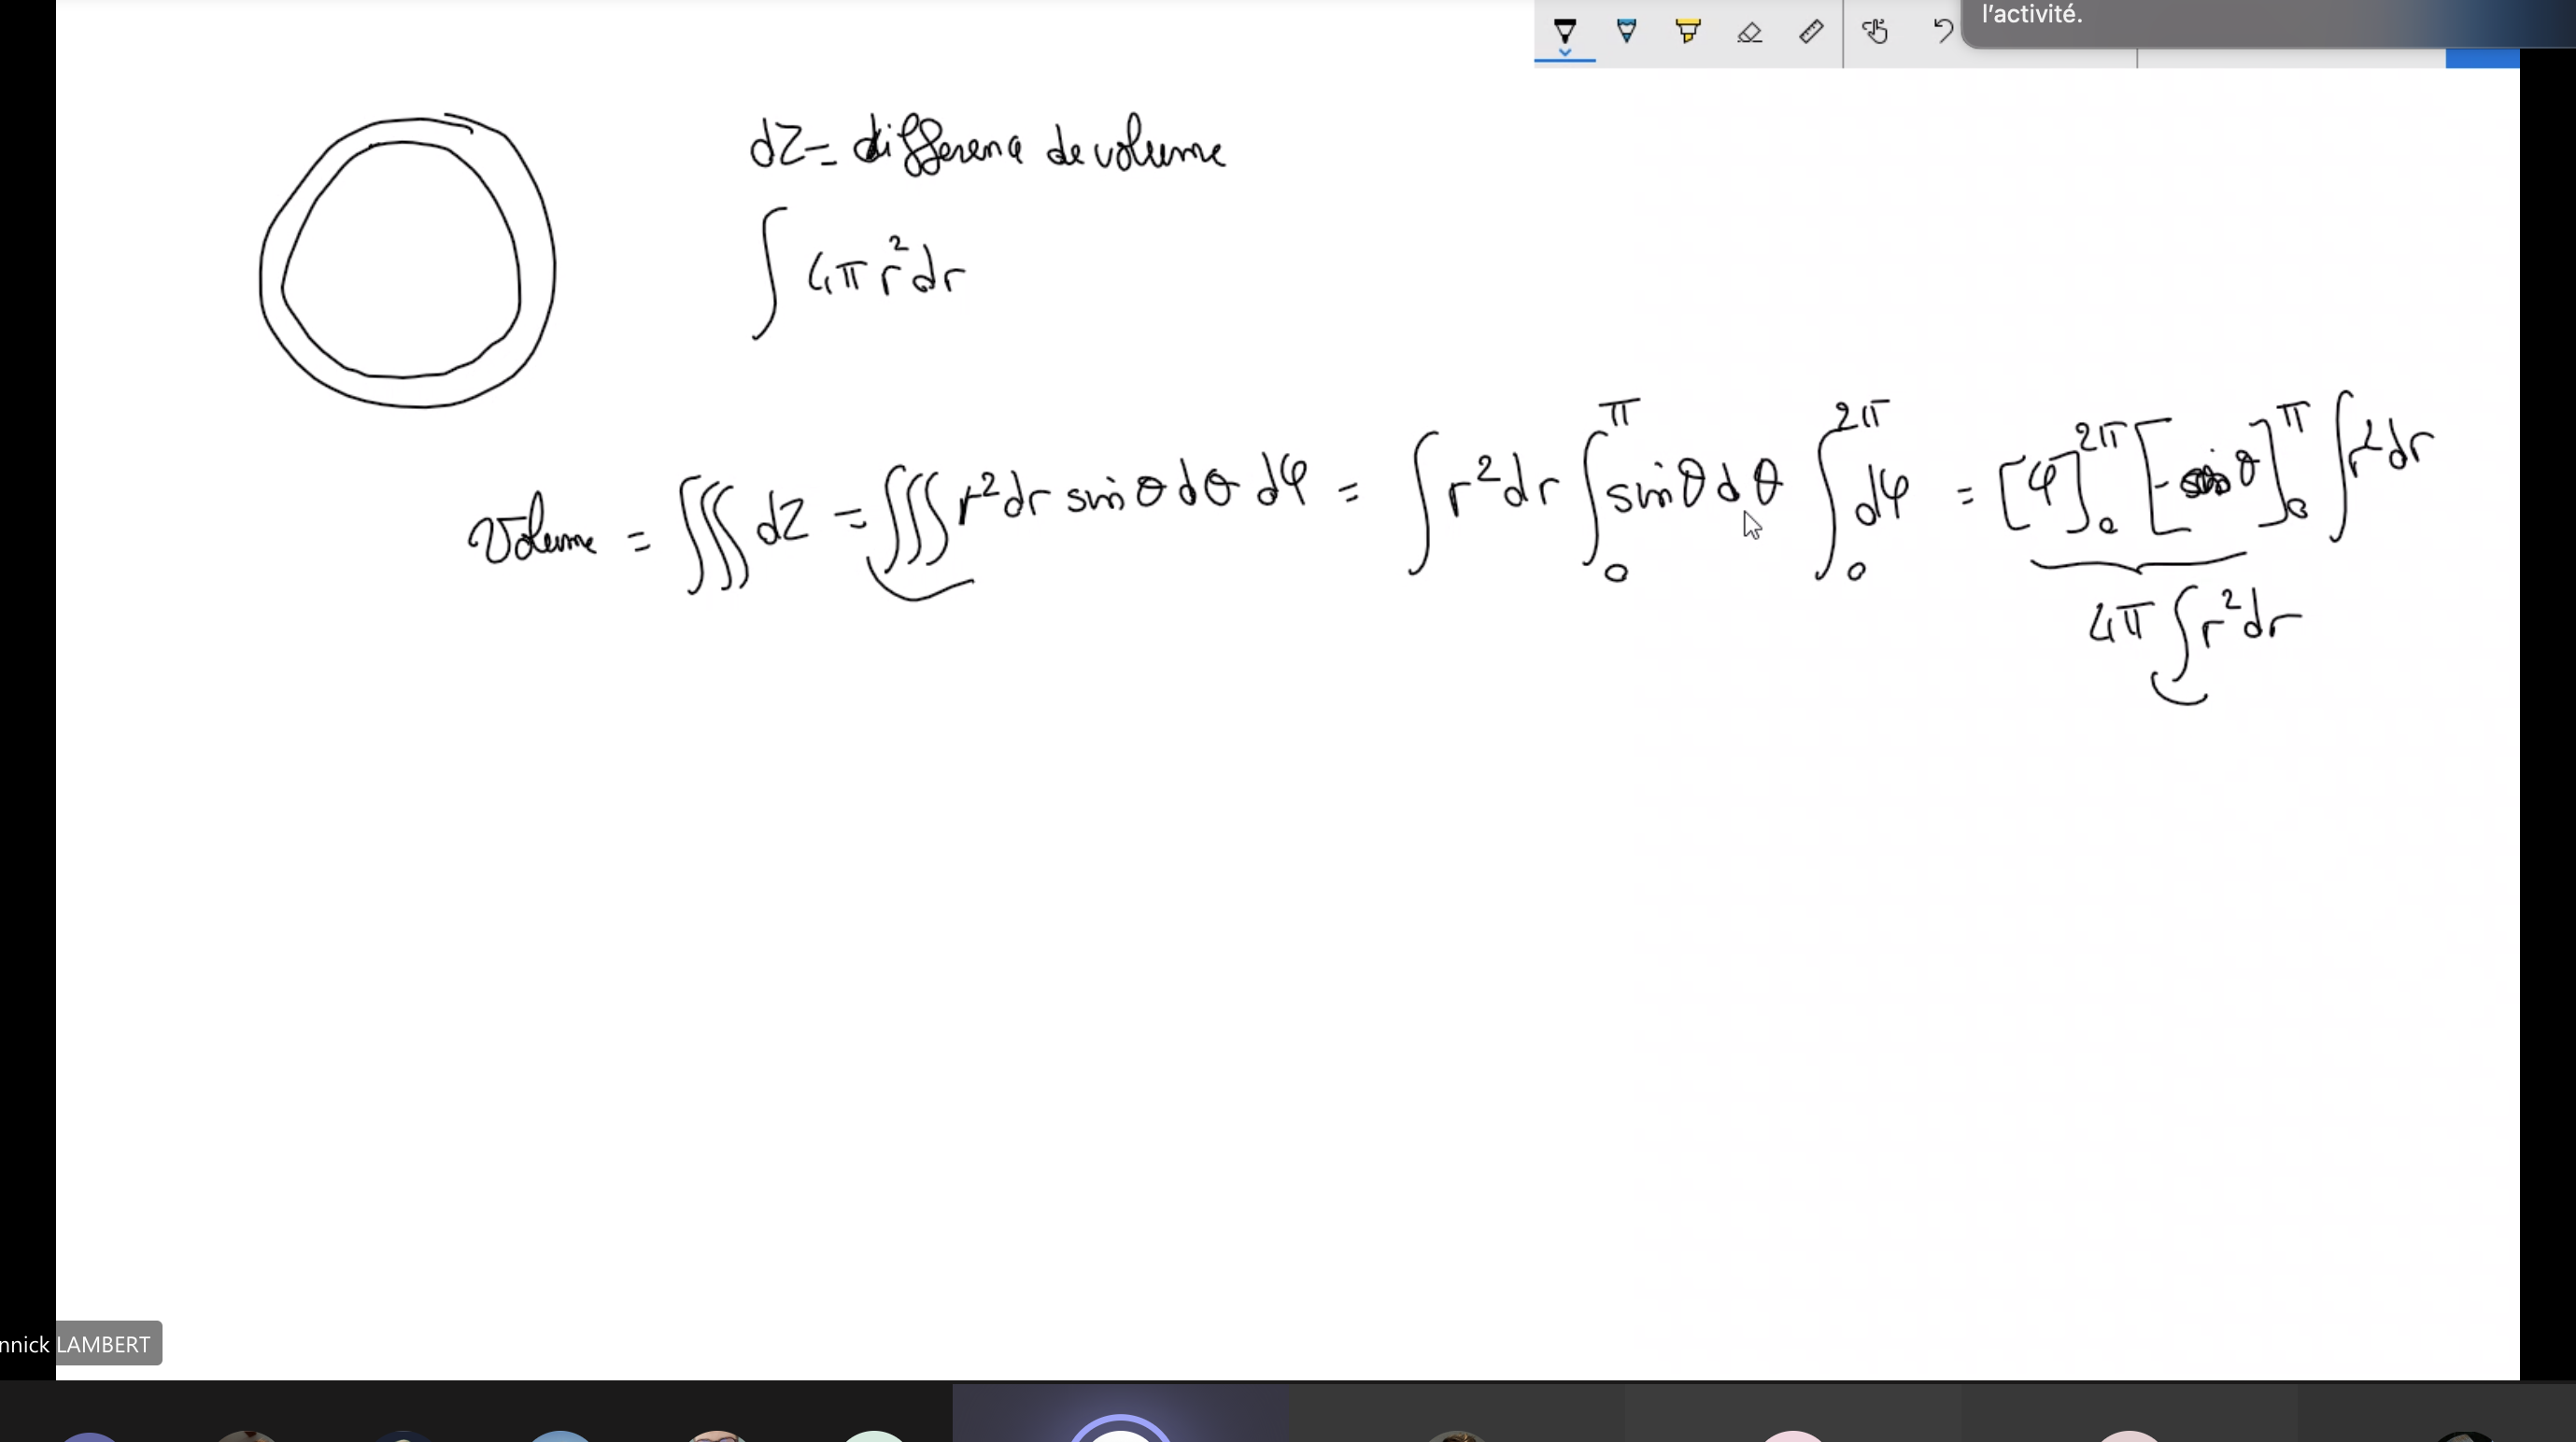 l'activité.
dZ = difference de volume
∫ 4π r² dr
Volume = ∭ dZ = ∭ r² dr sin θ dθ dφ = ∫ r² dr ∫₀^π sin θ d θ ∫₀^2π dφ = [φ]₀^2π [- θ]₀^π ∫ r² dr
4π ∫ r² dr
nnick LAMBERT